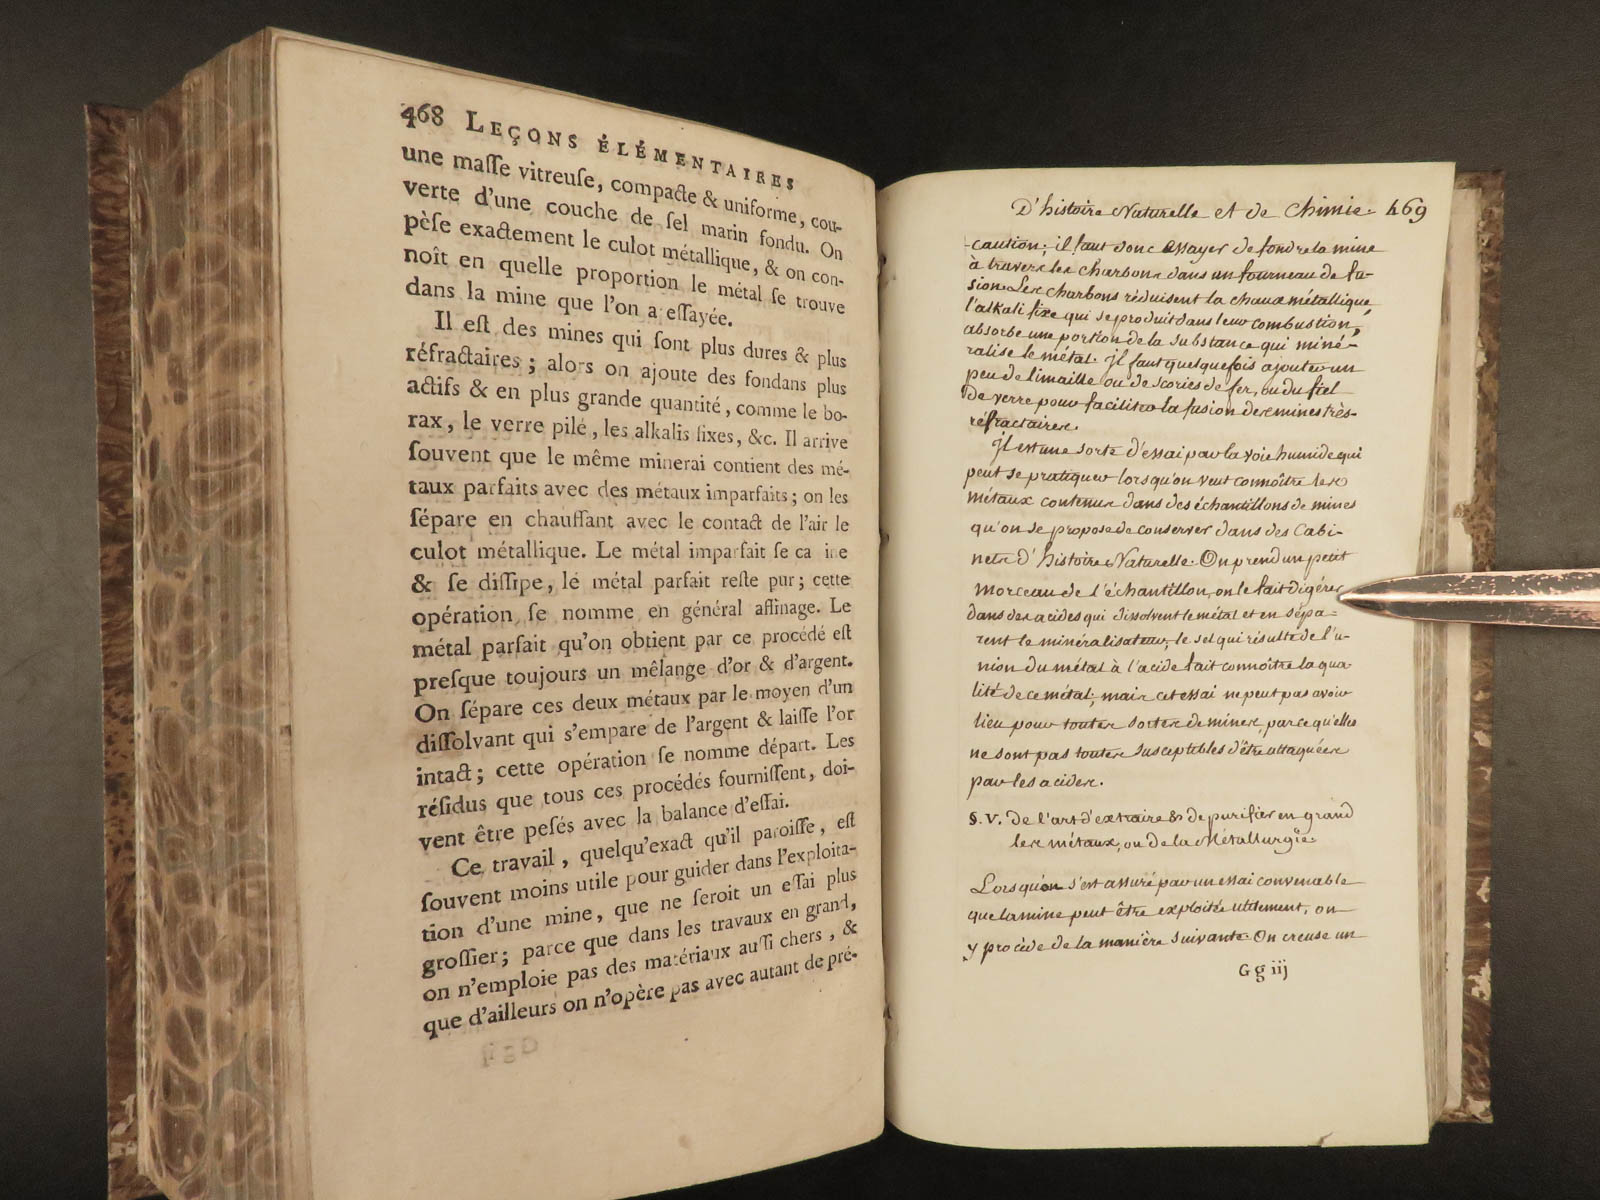 468 LEÇONS ÉLÉMENTAIRES
une maſſe vitreuſe, compacte & uniforme, cou-
verte d'une couche de ſel marin fondu. On
pèſe exactement le culot métallique, & on con-
noît en quelle proportion le métal ſe trouve
dans la mine que l'on a eſſayée.
Il eſt des mines qui ſont plus dures & plus
réfractaires ; alors on ajoute des fondans plus
actifs & en plus grande quantité, comme le bo-
rax, le verre pilé, les alkalis fixes, &c. Il arrive
ſouvent que le même minerai contient des mé-
taux parfaits avec des métaux imparfaits ; on les
ſépare en chauffant avec le contact de l'air le
culot métallique. Le métal imparfait ſe ca ine
& ſe diſſipe, le métal parfait reſte pur ; cette
opération ſe nomme en général affinage. Le
métal parfait qu'on obtient par ce procédé eſt
preſque toujours un mêlange d'or & d'argent.
On ſépare ces deux métaux par le moyen d'un
diſſolvant qui s'empare de l'argent & laiſſe l'or
intact ; cette opération ſe nomme départ. Les
réſidus que tous ces procédés fourniſſent, doi-
vent être peſés avec la balance d'eſſai.
Ce travail, quelqu'exact qu'il paroiſſe, eſt
ſouvent moins utile pour guider dans l'exploita-
tion d'une mine, que ne ſeroit un eſſai plus
groſſier ; parce que dans les travaux en grand,
on n'emploie pas des matériaux auſſi chers, &
que d'ailleurs on n'opère pas avec autant de pré-
D'histoire Naturelle et de Chimie. 469
-caution ; il faut donc essayer de fondre la mine
à travers les charbons dans un fourneau de fu-
sion. Les charbons réduisent la chaux métallique,
l'alkali fixe qui se produit dans leur combustion,
absorbe une portion de la substance qui miné-
ralise le métal. Il faut quelquefois ajouter un
peu de limaille ou de scories de fer, ou du fiel
de verre pour faciliter la fusion des mines très-
réfractaires.
Il est une sorte d'essai par la voie humide qui
peut se pratiquer lorsqu'on veut connoître les
métaux contenus dans des échantillons de mines
qu'on se propose de conserver dans des Cabi-
nets d'histoire Naturelle. On prend un petit
morceau de l'échantillon, on le fait digérer
dans des acides qui dissolvent le métal et en sépa-
rent le minéralisateur, le sel qui résulte de l'u-
nion du métal à l'acide fait connoître la qua-
lité de ce métal ; mais cet essai ne peut pas avoir
lieu pour toutes sortes de mines, parce qu'elles
ne sont pas toutes susceptibles d'être attaquées
par les acides.
§. V. De l'art d'extraire & de purifier en grand
les métaux, ou de la Métallurgie.
Lorsqu'on s'est assuré par un essai convenable
que la mine peut être exploitée utilement, on
y procède de la manière suivante. On creuse un
G g iij